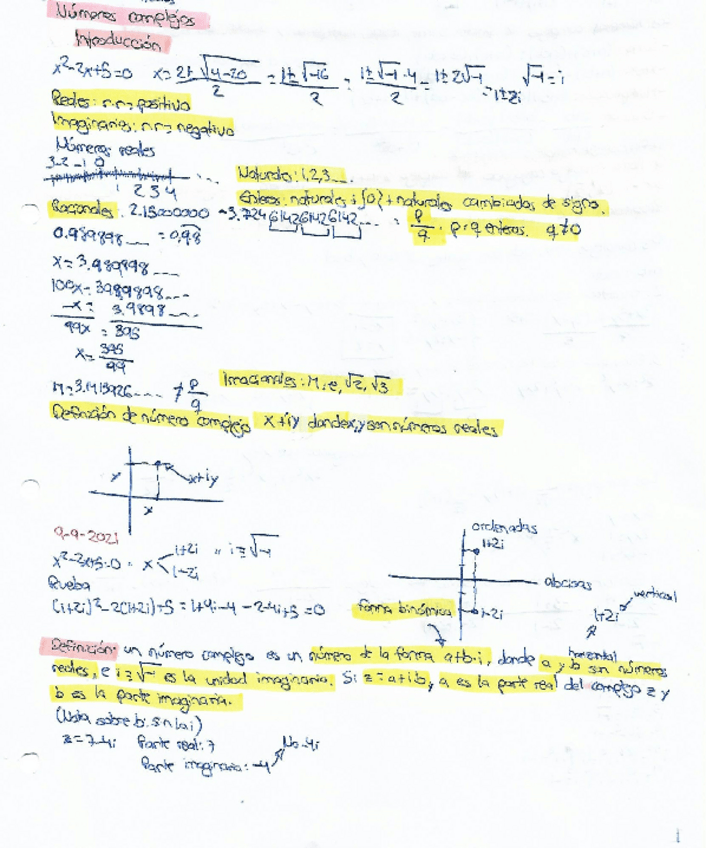 Números complejos
Introducción
x²-2x+5=0 x=2±√4-20/2 = 1±√-16/2 = 1±√-1·4/2 = 1±2√-1 = 1±2i √-1=i
Reales: n.r=positivo
Imaginarios: n.r=negativo
Números reales
3-2-1 0
1 2 3 4
Naturales: 1,2,3...
Enteros: naturales + {0} + naturales cambiados de signo.
Racionales. 2.15000000 -3.724614261426142... = p/q. p,q enteros. q≠0
0.989898... = 0,98
x=3.989898...
100x=398,9898...
-x= 3.9898...
99x = 395
x= 395/99
π=3.1413926.... ≠ p/q
Irracionales: π, e, √2, √3
Definición de número complejo x+iy donde x,y son números reales
y x+iy
x
9-9-2021
ordenadas
1+2i
x²-2x+5=0 = x 1+2i 1-2i i=√-1
abcisas
Prueba
vertical
(1+2i)²-2(1+2i)+5=1+4i-4-2-4i+5=0
forma binómica
1-2i
1+2i
horizontal
Definición: un número complejo es un número de la forma a+b·i, donde a y b son números
reales, e i=√-1 es la unidad imaginaria. Si z=a+ib, a es la parte real del complejo z y
b es la parte imaginaria.
(Nota sobre b: sin la i)
z=7-4i Parte real: 7 No -4i
Parte imaginaria: -4
1